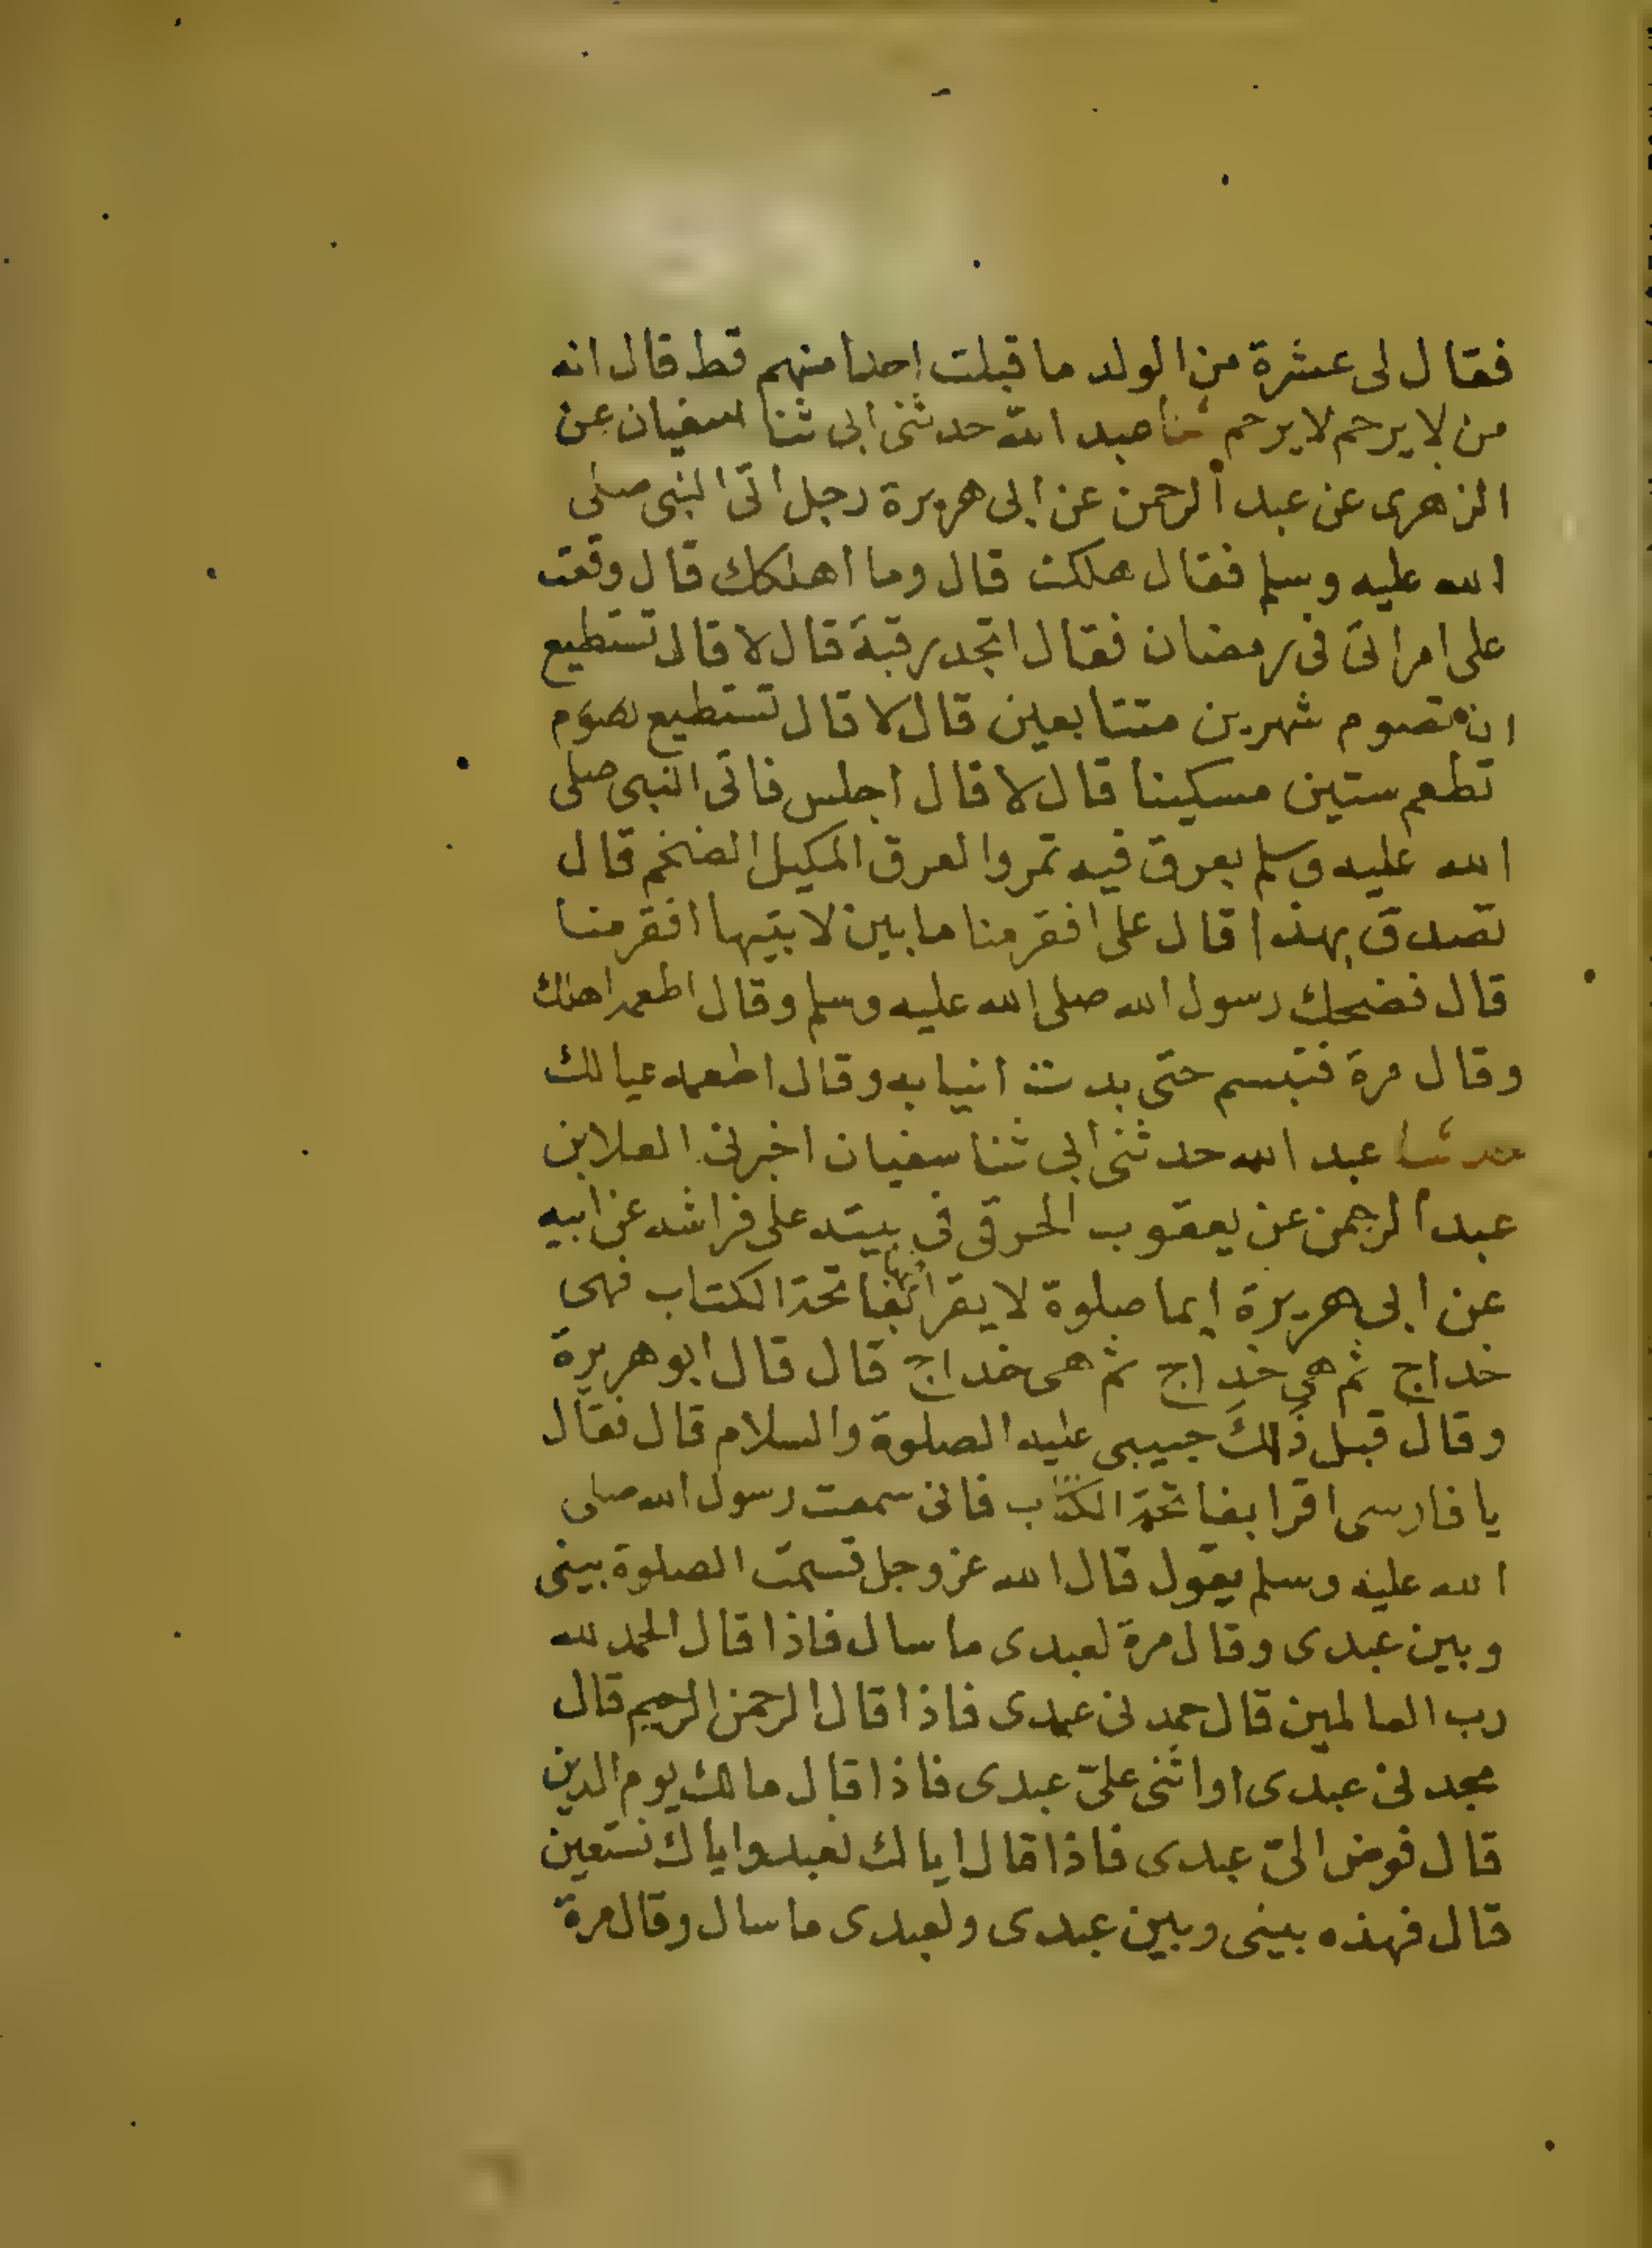 فقال لى عشرة من الولد ما قبلت احدا منهم قط قال انه
من لا يرحم لا يرحم ثنا عبد الله حدثنى ابى ثنا سفيان عن
الزهرى عن عبد الرحمن عن ابى هريرة رجل اتى النبى صلى
الله عليه وسلم فقال هلكت قال وما اهلكك قال وقعت
على امراتى فى رمضان فقال اتجد رقبة قال لا قال تستطيع
ان تصوم شهرين متتابعين قال لا قال تستطيع تصوم
تطعم ستين مسكينا قال لا قال اجلس فاتى النبى صلى
الله عليه وسلم بعرق فيه تمر والعرق المكيل الضخم قال
تصدق بهذا قال على افقر منا ما بين لابتيها افقر منا
قال فضحك رسول الله صلى الله عليه وسلم وقال اطعمه اهلك
وقال مرة فتبسم حتى بدت انيابه وقال اطعمه عيالك
حدثنا عبد الله حدثنى ابى ثنا سفيان اخبرنى العلا بن
عبد الرحمن عن يعقوب الحرقى فى بيته على فراشه عن ابيه
عن ابى هريرة ايما صلوة لا يقرا فيها بفاتحة الكتاب فهى
خداج ثم هى خداج ثم هى خداج قال قال ابو هريرة
وقال قبل ذلك حبيبى عليه الصلوة والسلام قال فقال
يا فارسى اقرا بفاتحة الكتاب فانى سمعت رسول الله صلى
الله عليه وسلم يقول قال الله عز وجل قسمت الصلوة بينى
وبين عبدى وقال مرة لعبدى ما سال فاذا قال الحمد لله
رب العالمين قال حمدنى عبدى فاذا قال الرحمن الرحيم قال
مجدنى عبدى او اثنى علىّ عبدى فاذا قال مالك يوم الدين
قال فوض الىّ عبدى فاذا قال اياك نعبد واياك نستعين
قال فهذه بينى وبين عبدى ولعبدى ما سال وقال مرة